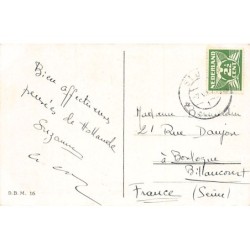 Bien affectueuses
pensées de Hollande
Suzanne
NEDERLAND
2½
CENT
Madame
21 Rue Danjou
à Boulogne
Billancourt
France (Seine)
D.B.M. 96